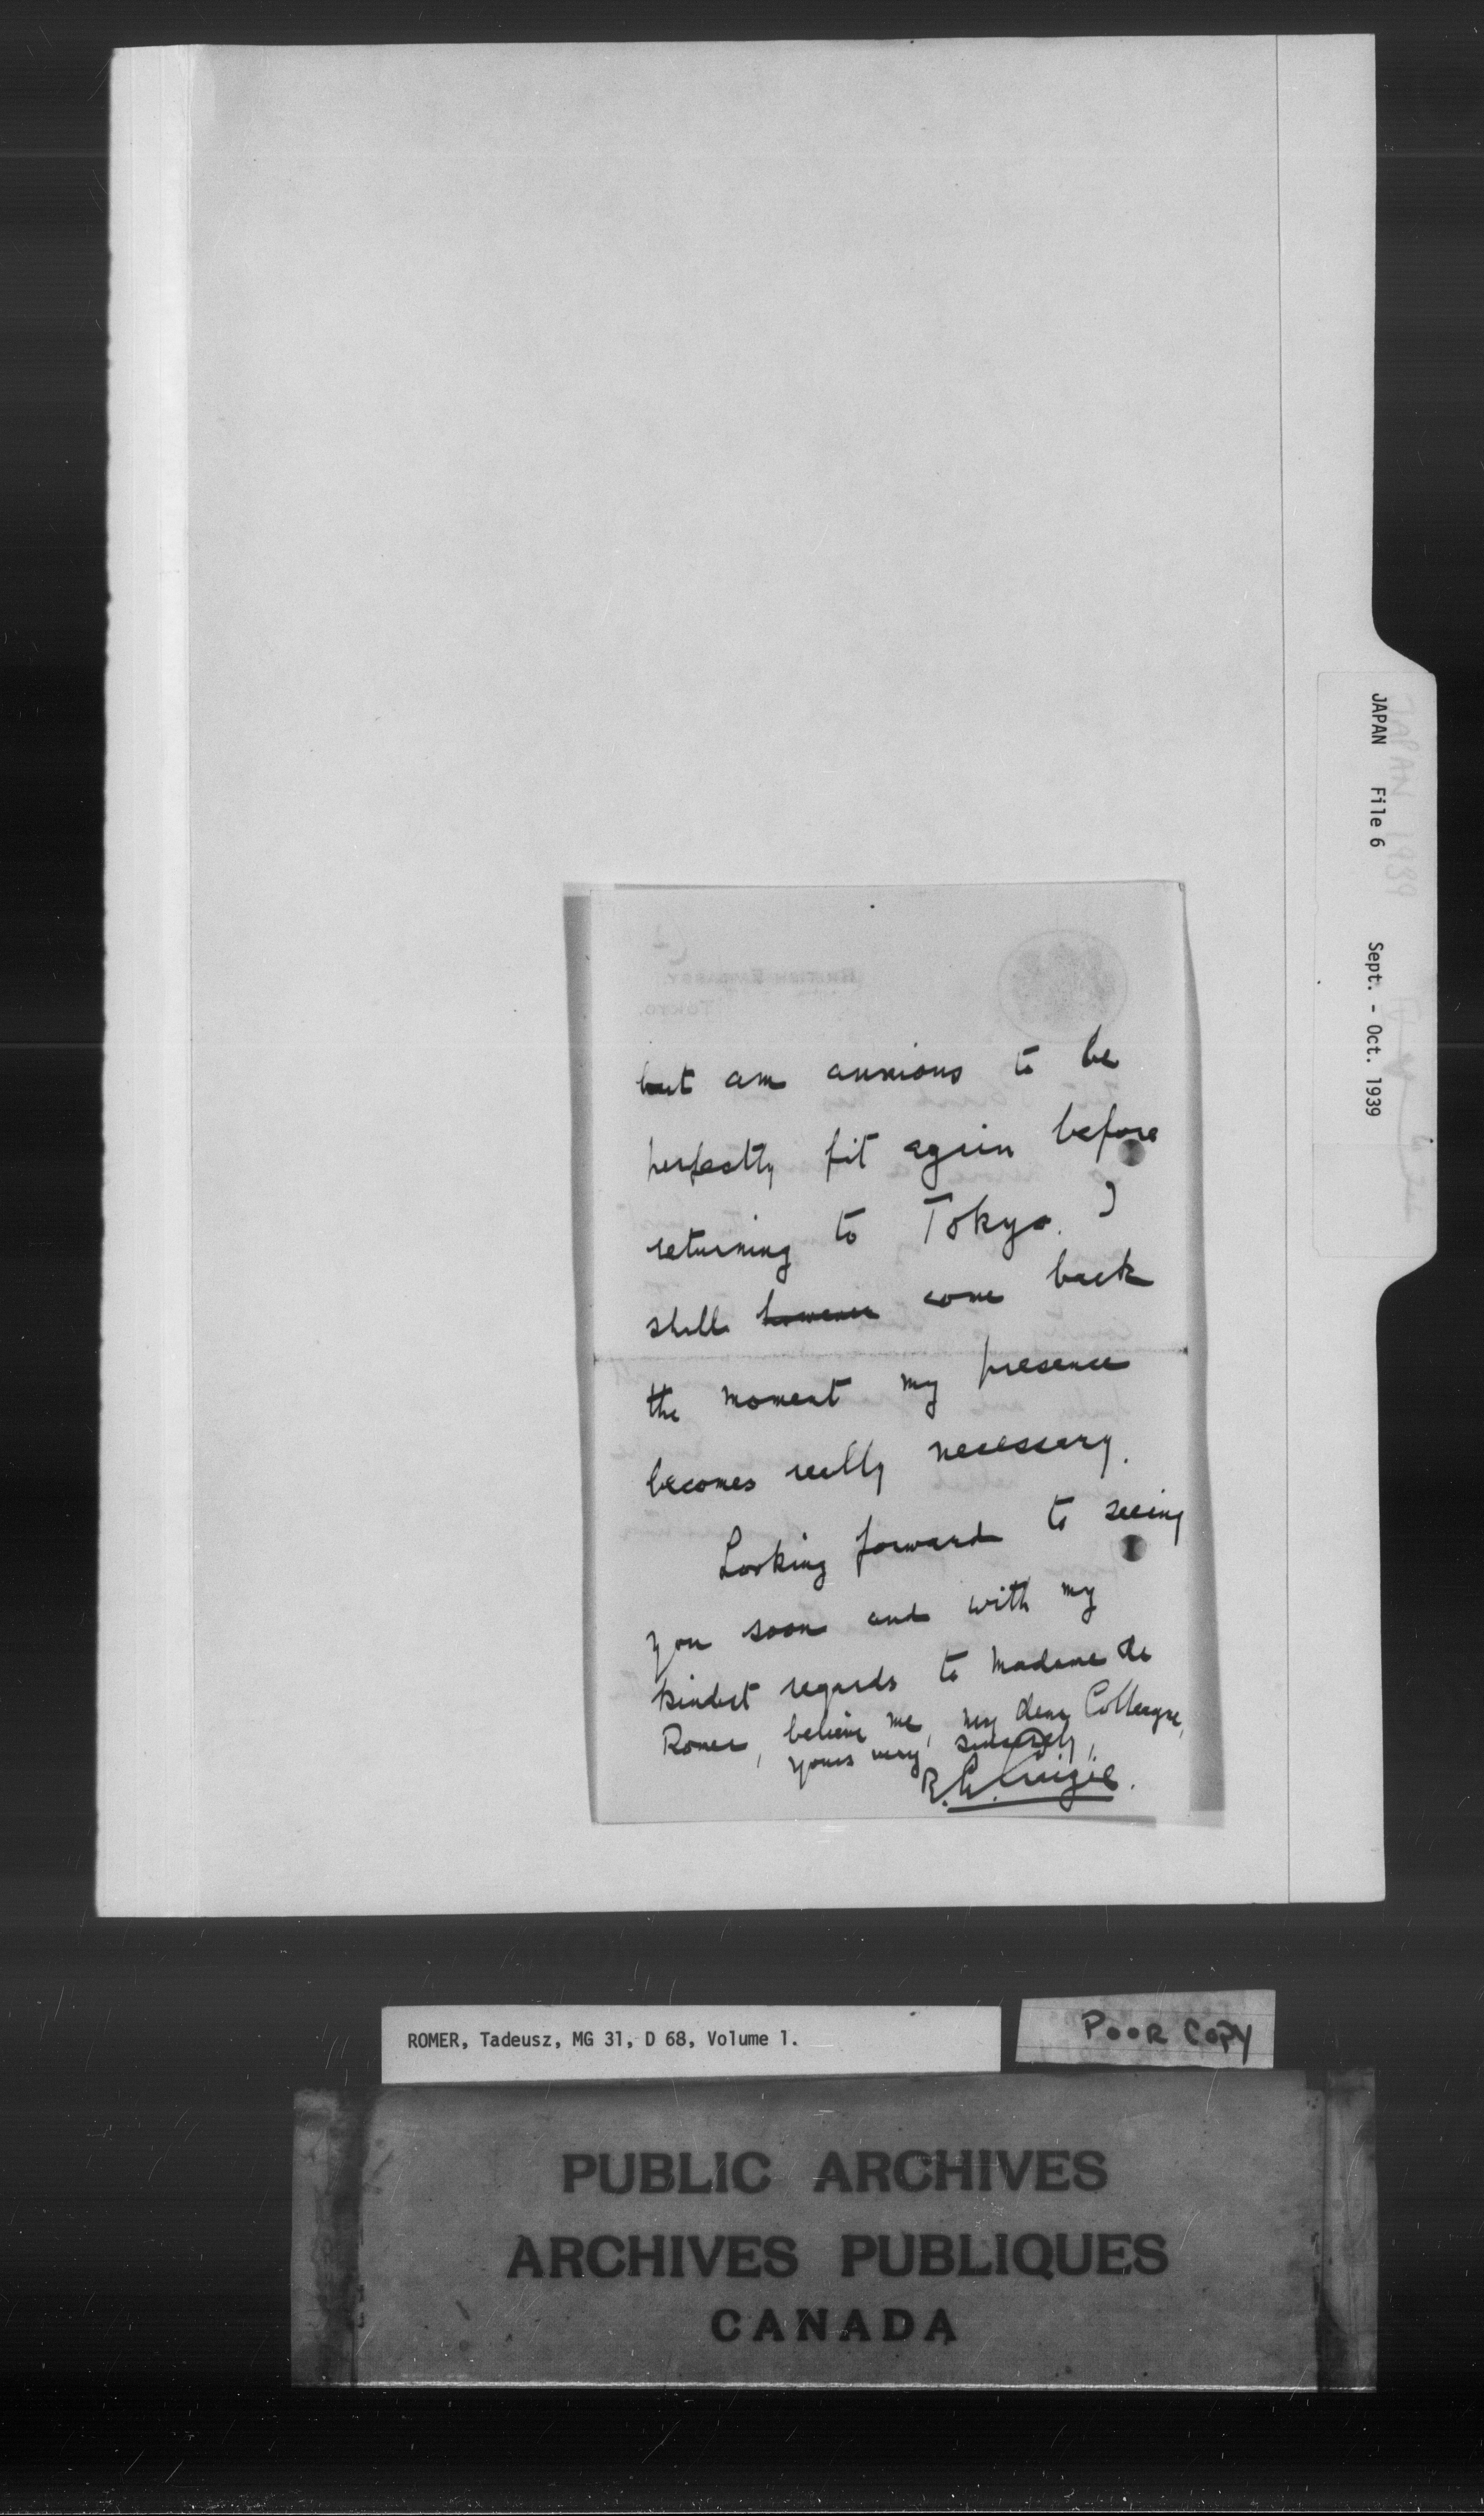 but am anxious to be
perfectly fit again before
returning to Tokyo. I
shall however come back
the moment my presence
becomes really necessary.
Looking forward to seeing
you soon and with my
kindest regards to Madame de
Romer, believe me, my dear Colleague,
yours very sincerely,
R. L. Craigie.
BRITISH EMBASSY
TOKYO.
JAPAN File 6 Sept. - Oct. 1939
JAPAN 1939
ROMER, Tadeusz, MG 31, D 68, Volume 1.
POOR COPY
PUBLIC ARCHIVES
ARCHIVES PUBLIQUES
CANADA